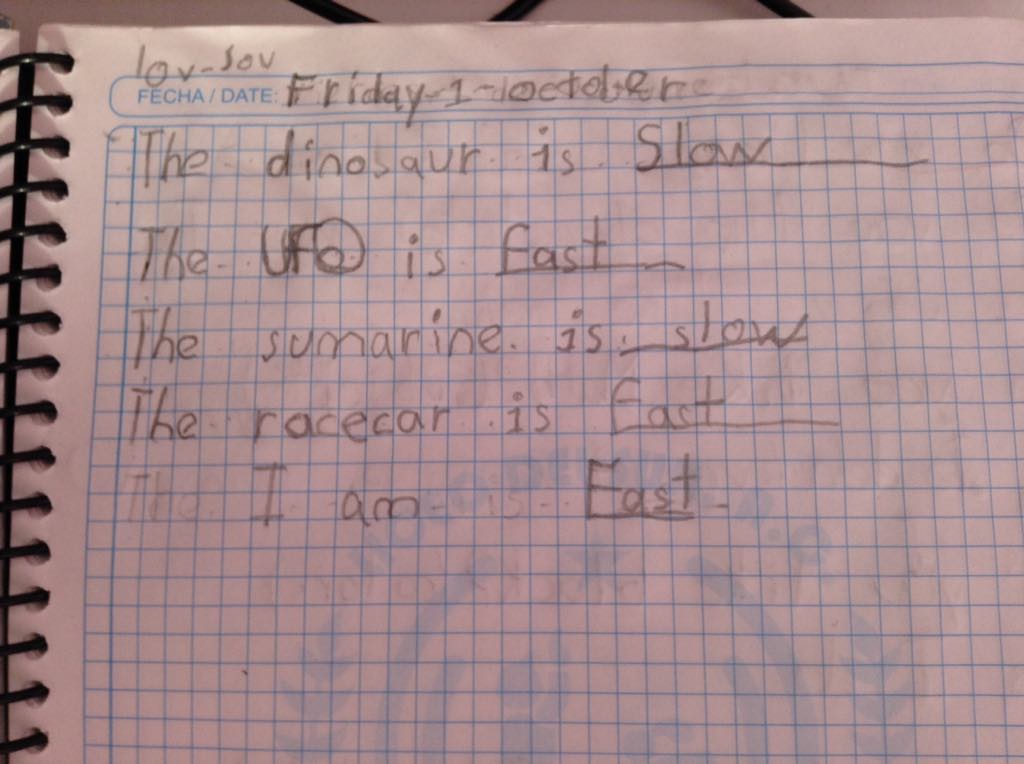 lov-sov
FECHA / DATE: Friday-1-october
The dinosaur is Slow
The UFO is Fast
The sumarine is slow
The racecar is Fast
The I am is Fast